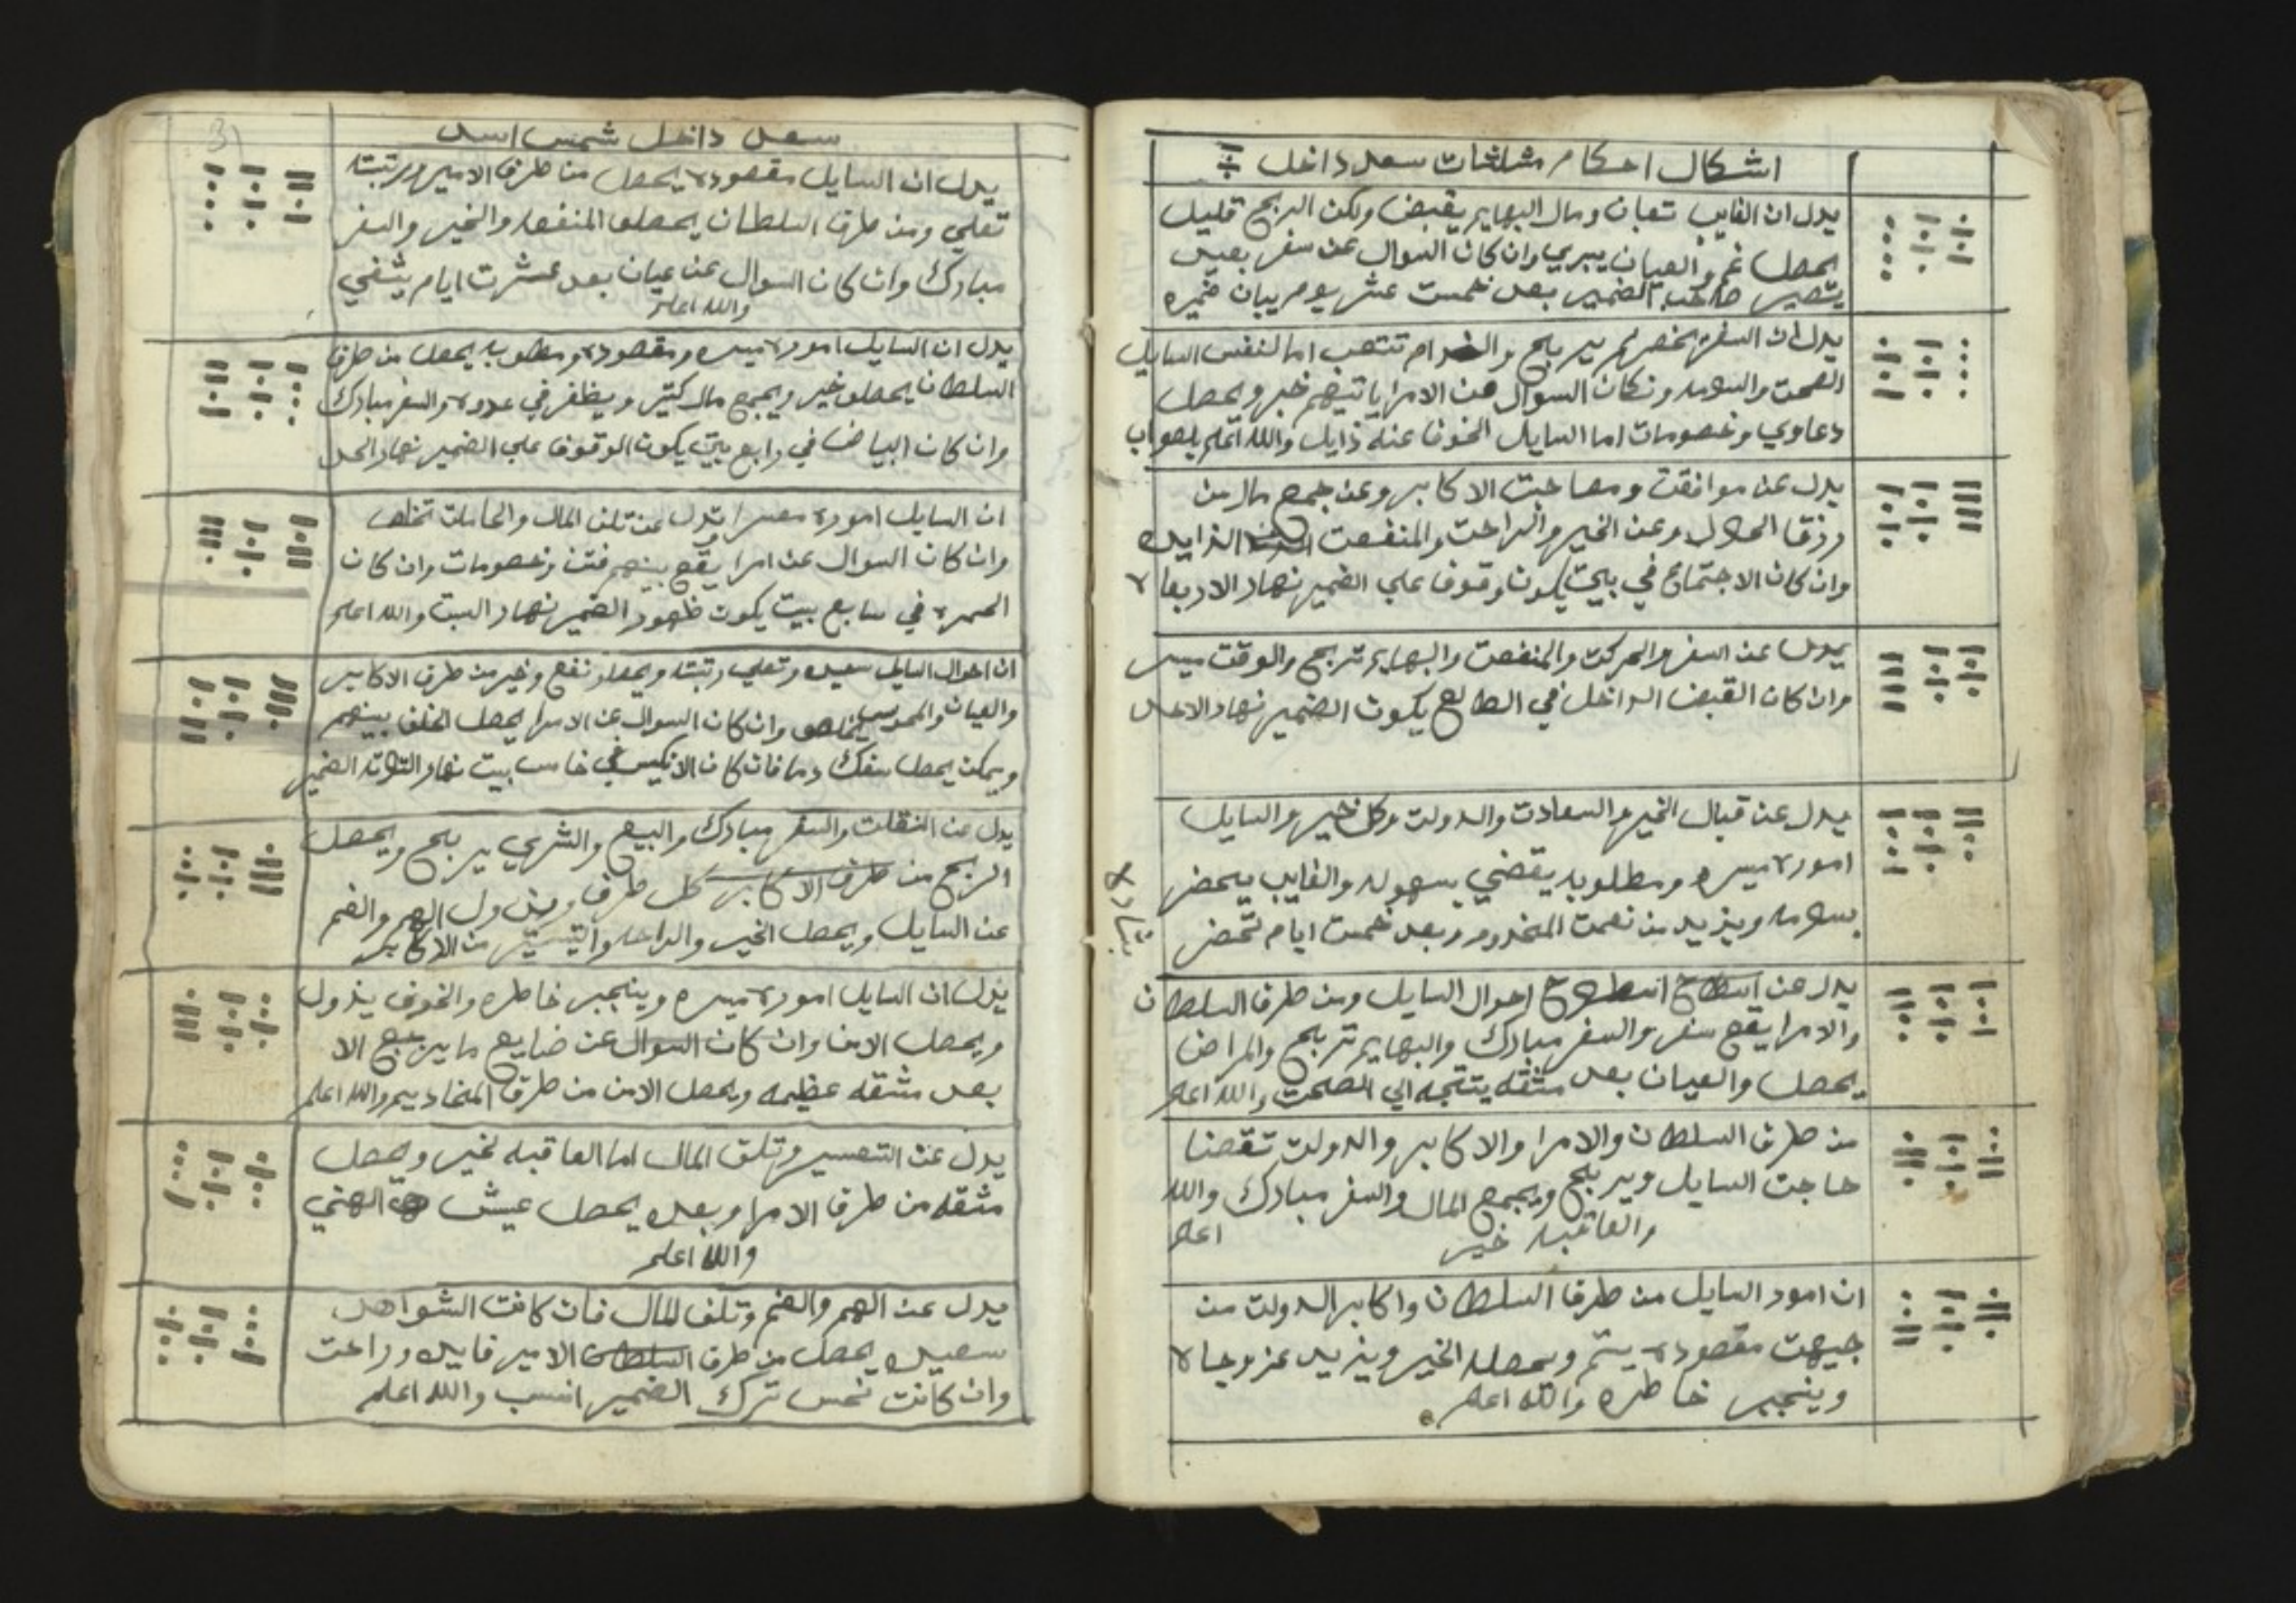 اشكال احكام مثلثات سعد داخل
يدل ان الغايب تعبان ومال البهايم يقبض ولكن الربح قليل
يحصل غم والعيان يبري وان كان السوال عن سفر بعيد
يتصير صاحب الضمير بعد خمست عشر يوم يبان ضميره
يدل ان السفر بخصهم ير بح والخدام تتعب اما لنفس السايل
الصحت والسلامه ونكان السوال عن الامرا ياتيهم خبر ويحصل
دعاوي وخصومات اما السايل الخوف عنه ذايل والله اعلم بلصواب
يدل عن موافقت ومصاحبت الاكابر وعن جمع مال من
رزق الحلال وعن الخير والراحت والمنفعت الزايده
وان كان الاجتماع في بيت يكون وقوف علي الضمير نهار الاربعا
يدل عن السفر والحركت والمنفعت والبهايم تربح والوقت ميسر
وان كان القبض الداخل في الطالع يكون الضمير نهار الاحد
يدل عن قبال الخير والسعادت والدولت وكل خير والسايل
اموره ميسره ومطلوبه يقضي بسهوله والغايب يحضر
بسلامه ويزيد من نعمت المخدوم وبعد خمست ايام تحضر
بشاره
يدل عن اصطلاح احوال السايل ومن طرف السلطان
والامرا يقع سفر والسفر مبارك والبهايم تربح والمراض
يحصل والعيان بعد مشقه يتجه الي الصحت والله اعلم
من طرف السلطان والامرا والاكابر والدولت تقضا
حاجت السايل وير بح ويجمع المال والسفر مبارك والله
والعاقبه خير اعلم
ان امور السايل من طرف السلطان واكابر الدولت من
جيهت مقصوده يتم ويحصله الخير ويزيد عز وجاه
وينجبر خاطره والله اعلم
سعد داخل شمس اسد
يدل ان السايل مقصوده يحصل من طرف الامير ورتبته
تعلي ومن طرف السلطان يحصلو المنفعه والخير والسفر
مبارك وان كان السوال عن عيان بعد عشرت ايام يشفي
والله اعلم
يدل ان السايل اموره ميسره ومقصوده ومطلوبه يحصل من طرف
السلطان يحصلو خير ويجمع مال كتير ويظفر في عدوه والسفر مبارك
وان كان البياض في رابع بيت يكون الوقوف علي الضمير نهار الحد
ان السايل اموره معسرا وتدل عن تلف المال والحاملات تخلص
وان كان السوال عن امرا يقع بينهم فتن وخصومات وان كان
الحمره في سابع بيت يكون ظهور الضمير نهار السبت والله اعلم
ان احوال السايل سعيده وتعلي رتبته ويحصلو نفع وخير من طرف الاكابر
والعيان والمحبوس يخلصو وان كان السوال عن الامرا يحصل الخلف بينهم
ويمكن يحصل سفك دما فان كان الانكيس في خامس بيت نهار التلاته الضمير
يدل عن النقلت والسفر مبارك والبيع والشري ير بح ويحصل
الربح من طرف الاكابر كل طرف ويزول الهم والغم
عن السايل ويحصل الخير والراحه والتيسير من الاكابر
يدل ان السايل اموره ميسره وينجبر خاطره والخوف يزول
ويحصل الامن وان كان السوال عن ضايع ما يرجع الا
بعد مشقه عظيمه ويحصل الامن من طرف المخاديم والله اعلم
يدل عن التعسير وتلف المال اما العاقبه لخير ويحصل
مشقه من طرف الامرا وبعده يحصل عيش الهني
والله اعلم
يدل عن الهم والغم وتلف المال فان كانت الشواهد
سعيده يحصل من طرف السلطان الامير فايده وراحت
وان كانت نحس ترك الضمير انسب والله اعلم